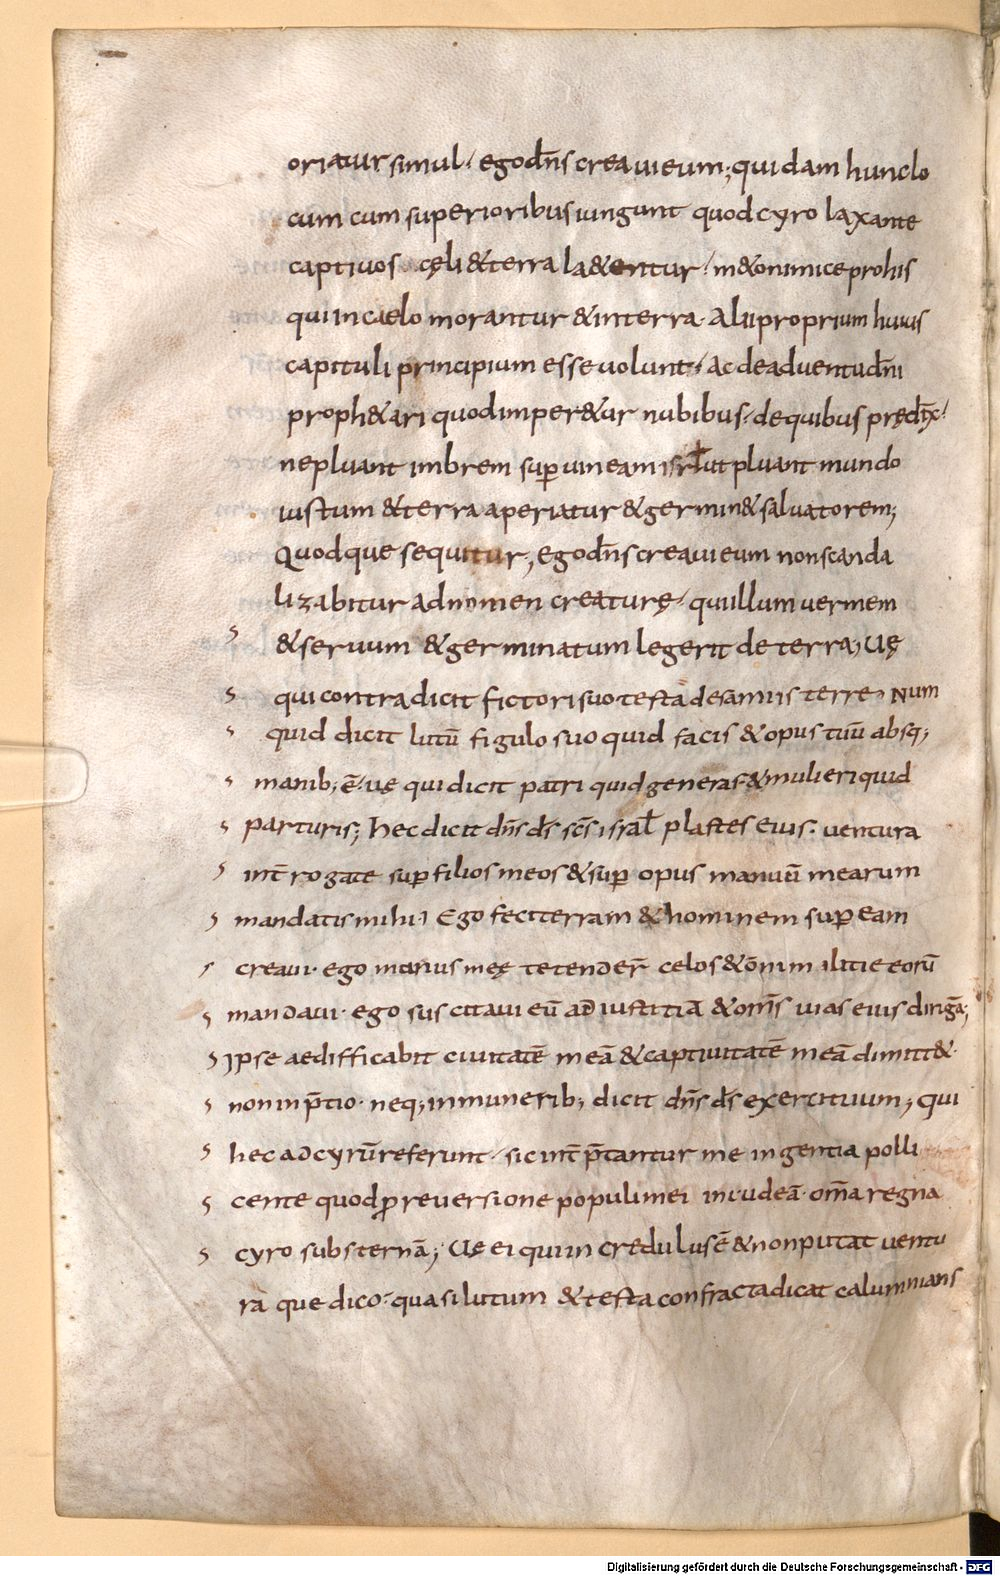 oriatur simul / ego dn̄s creaui eum; quidam hunc lo
cum cum superioribus iungunt quod cyro laxante
captiuos cęli & terra lad&entur / m&onimice pro his
qui in caelo morantur & in terra. Alii proprium huius
capituli principium esse uolunt / ac de aduentu dn̄i
proph&ari quod imper&ur nubibus / de quibus pręd
ne pluant imbrem sup̄ uineam isrl̄ ut pluant mundo
iustum & terra aperiatur & germin& saluatorem;
Quodque sequitur, ego dn̄s creaui eum non scanda
lizabitur ad nomen creaturę / qui illum uermem
& seruum & germinatum legerit de terra; Uę
qui contradicit fictori suo testa de samiis terre, Num
quid dicit lutū figulo suo quid facis & opus tuū absq;
manib; ē / uę qui dicit patri quid generas & mulieri quid
parturis; hec dicit dn̄s ds̄ sc̄s isral̄ plastes eius. uentura
int̄rogate sup̄ filios meos & sup̄ opus manuū mearum
mandatis mihi? Ego feci terram & hominem sup̄ eam
creaui. ego manus meę tetender̄ celos & om̄i militie eorū
mandaui. ego suscitaui eū ad iustitiā & om̄s uias eius dirigā;
Ipse aedifficabit ciuitatē meā & captiuitatē meā dimitt&.
non in p̄tio. neq; in munerib; dicit dn̄s ds̄ exercituum; qui
hec ad cyrū referunt / sic int̄p̄tantur me ingentia polli
cente quod p̄ reuersione populi mei in iudeā. om̄a regna
cyro substernā; Uę ei qui incredulus ē & non putat uentu
ra que dico / quasi lutum & testa confracta dicat calumnians
Digitalisierung gefördert durch die Deutsche Forschungsgemeinschaft - DFG